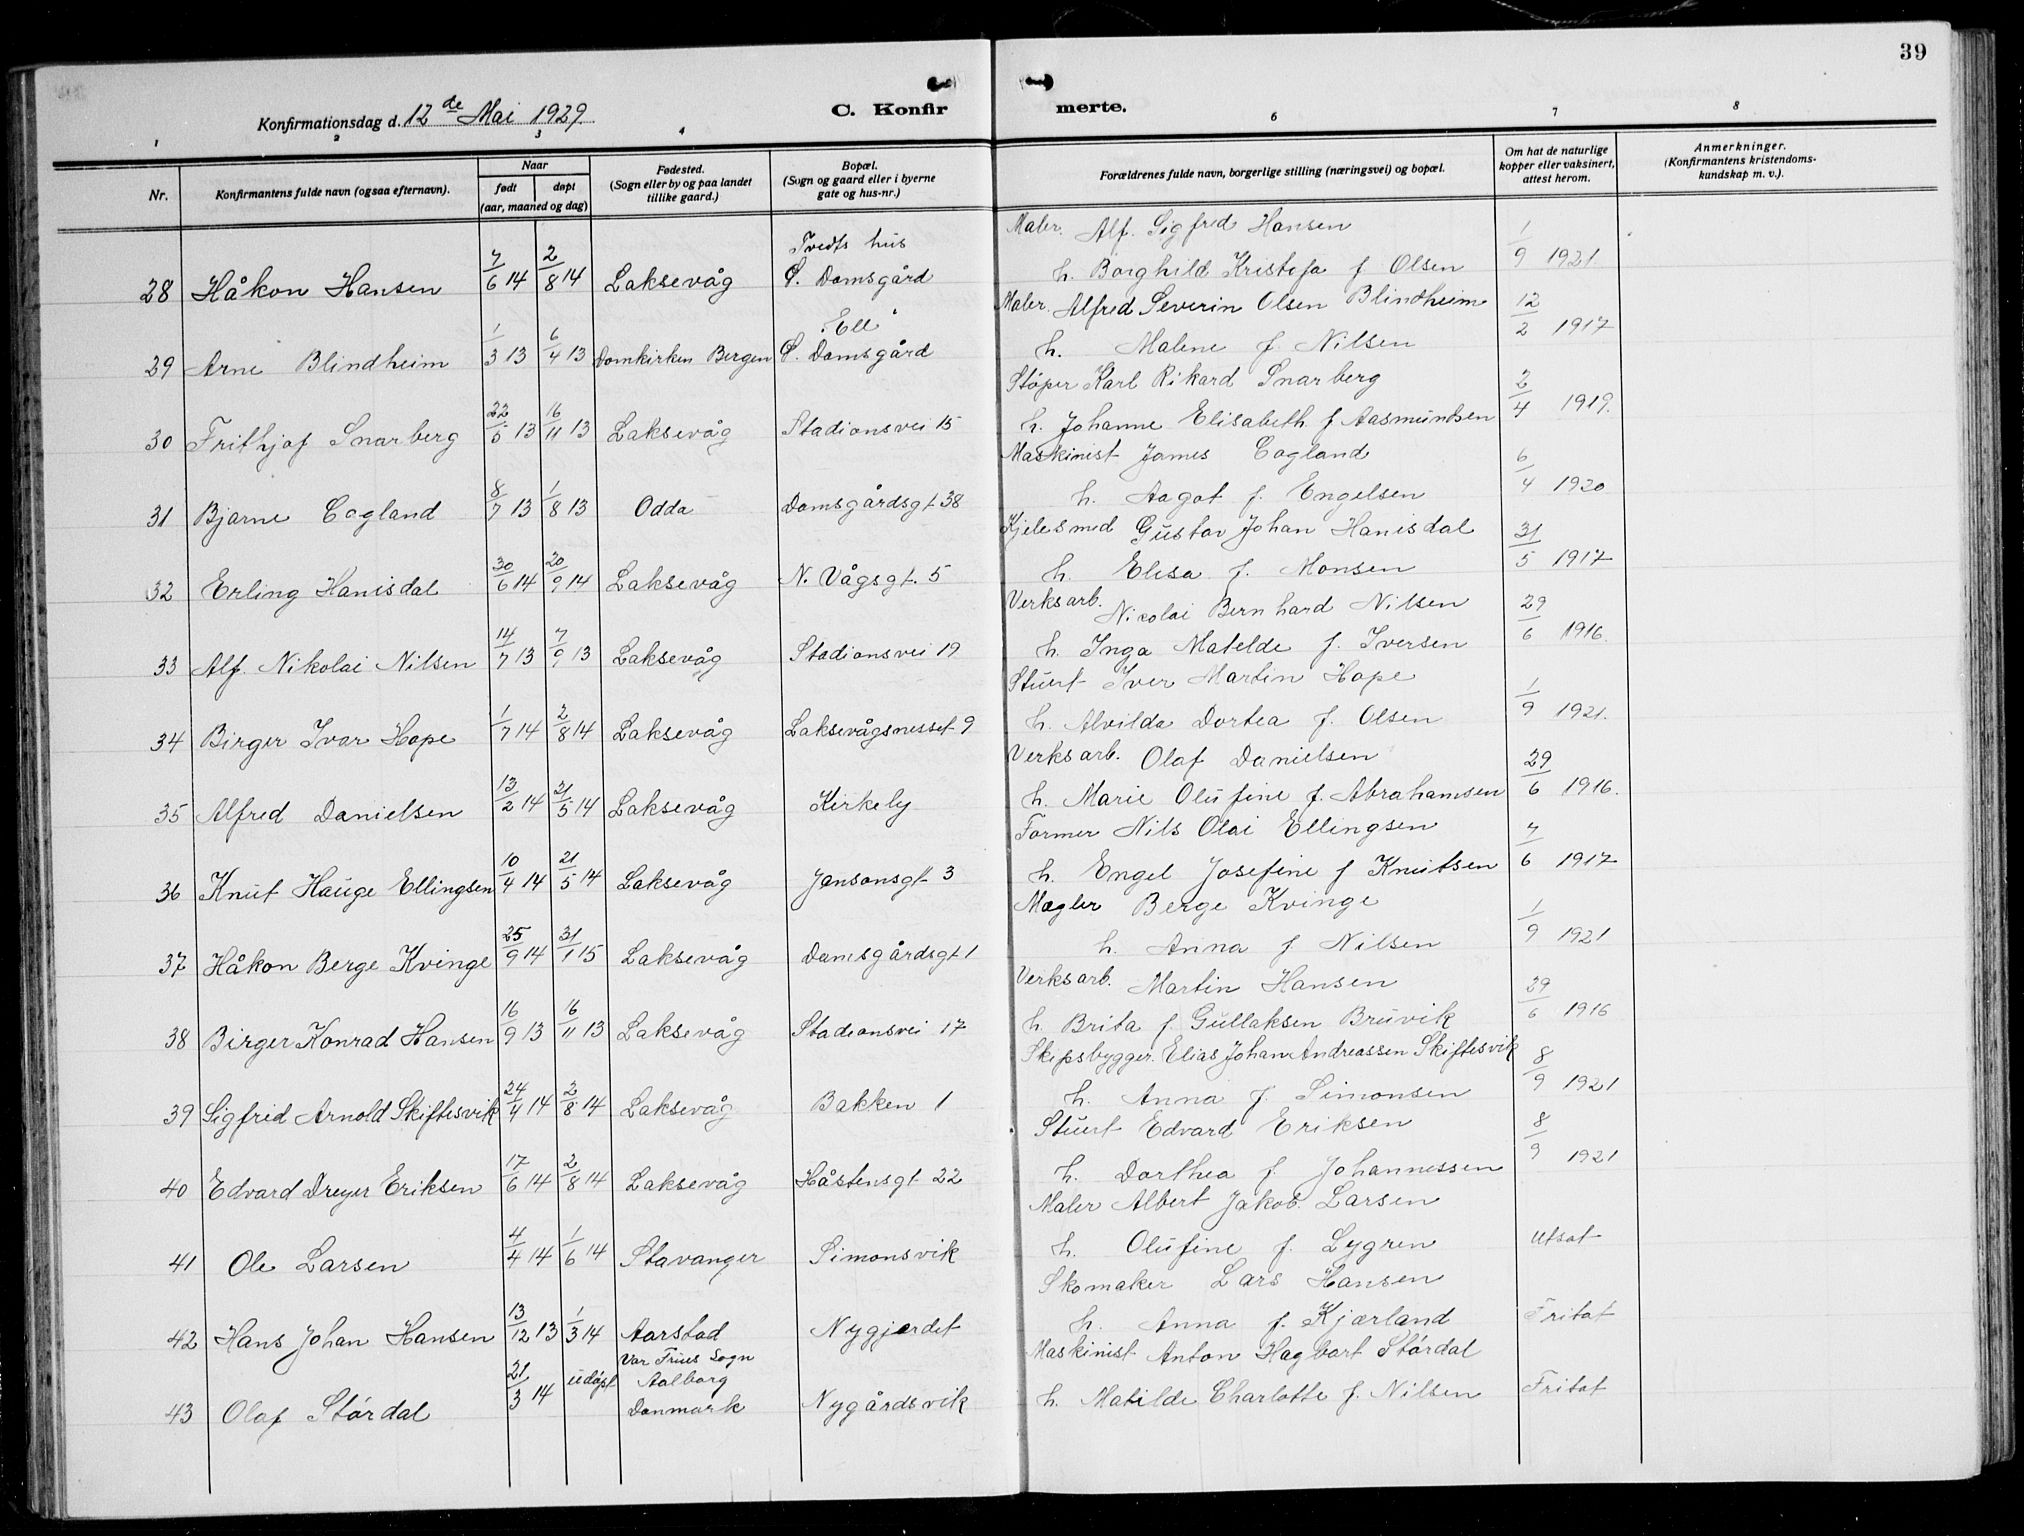 39
Konfirmationsdag d. 12 de Mai 1929.
C. Konfir merte.
1 2 3 4 6 7 8
Nr.
Konfirmantens fulde navn (ogsaa efternavn).
Naar
født døpt
(aar, maaned og dag)
Fødested.
(Sogn eller by og paa landet
tillike gaard.)
Bopæl.
(Sogn og gaard eller i byerne
gate og hus-nr.)
Forældrenes fulde navn, borgerlige stilling (næringsvei) og bopæl.
Om hat de naturlige
kopper eller vaksinert,
attest herom.
Anmerkninger.
(Konfirmantens kristendoms-
kundskap m. v.).
Tvedts hus Maler. Alf. Sigfred Hansen
28 Håkon Hansen 7/6 14 2/8 14 Laksevåg S. Damsgård h. Borghild Kristofa f Olsen 1/9 1921
Maler. Alfred Severin Olsen Blindheim
29 Arne Blindheim 1/3 13 6/4 13 Domkirken Bergen S. Damsgård h. Malene f. Nilsen 12/2 1917
Støper Karl Rikard Snarberg
30 Frithjof Snarberg 22/5 13 16/11 13 Laksevåg Stadionsvei 15 h. Johanne Elisabeth f Aasmundsen 2/4 1919.
Maskinist James Cogland
31 Bjarne Cogland 8/7 13 1/8 13 Odda Damsgårdsgt. 38 h. Aagot f. Engelsen 6/4 1920
Kjelesmed Gustav Johan Hanisdal
32 Erling Hanisdal 30/6 14 20/9 14 Laksevåg N. Vågsgt. 5 h. Elisa f. Monsen 31/5 1917
Verksarb. Nicolai Bernhard Nilsen
33 Alf. Nikolai Nilsen 14/7 13 7/9 13 Laksevåg Stadionsvei 19 h. Inga Matelde f. Iversen 29/6 1916.
Stuert Iver Martin Hope
34 Birger Ivar Hope 1/7 14 2/8 14 Laksevåg Laksevågsnesset 9 h. Alvilda Dortea f. Olsen 1/9 1921.
Verksarb. Olaf Danielsen
35 Alfred Danielsen 13/2 14 31/5 14 Laksevåg Kirkely h. Marie Olufine f. Abrahamsen 29/6 1916.
Former Nils Olai Ellingsen
36 Knut Hauge Ellingsen 10/4 14 21/5 14 Laksevåg Jansonsgt. 3 h. Engel Josefine f Knutsen 7/6 1917
Mægler Berge Kvinge
37 Håkon Berge Kvinge 25/9 14 31/1 15 Laksevåg Damsgårdsgt 1 h. Anna f Nilsen 1/9 1921
Verksarb. Martin Hansen
38 Birger Konrad Hansen 16/9 13 16/11 13 Laksevåg Stadionsvei 17 h. Brita f. Gullaksen Bruvik 29/6 1916
Skipsbygger. Elias Johan Andreassen Skiftesvik
39 Sigfred Arnold Skiftesvik 24/4 14 2/8 14 Laksevåg Bakken 1 h. Anna f. Simonsen 8/9 1921
Stuert Edvard Eriksen
40 Edvard Dreyer Eriksen 17/6 14 2/8 14 Laksevåg Håstensgt 22 h. Dorthea f. Johannessen 8/9 1921
Maler Albert Jakob. Larsen
41 Ole Larsen 4/4 14 1/6 14 Stavanger Simonsvik h. Olufine f. Lygren Utsat
Skomaker Lars Hansen
42 Hans Johan Hansen 13/12 13 1/3 14 Aarstad Nygjerdet h. Anna f. Kjærland Fritat
Vor Frues Sogn Maskinist Anton Hagbart Stórdal
Aalborg
43 Olaf Stórdal 21/3 14 udøpt Danmark Nygårdsvik h. Matilde Charlotte f. Nilsen Fritat